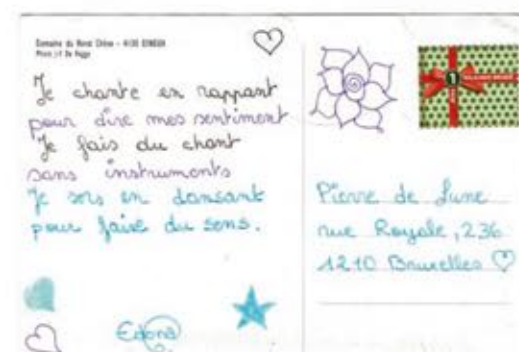 Domaine du Rond Chêne - 4130 ESNEUX
Je chante en rappant
pour dire mes sentiment
Je fais du chant
sans instruments
Je sors en dansant
pour faire du sens.
Edona
1
Pierre de Lune
rue Royale, 236
1210 Bruxelles